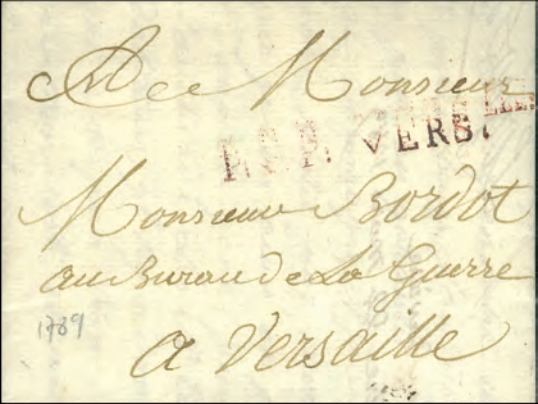 A Monsieur
P.P.P. VERS.
Monsieur Bordot
au Bureau de La Guerre
1789
a Versaille